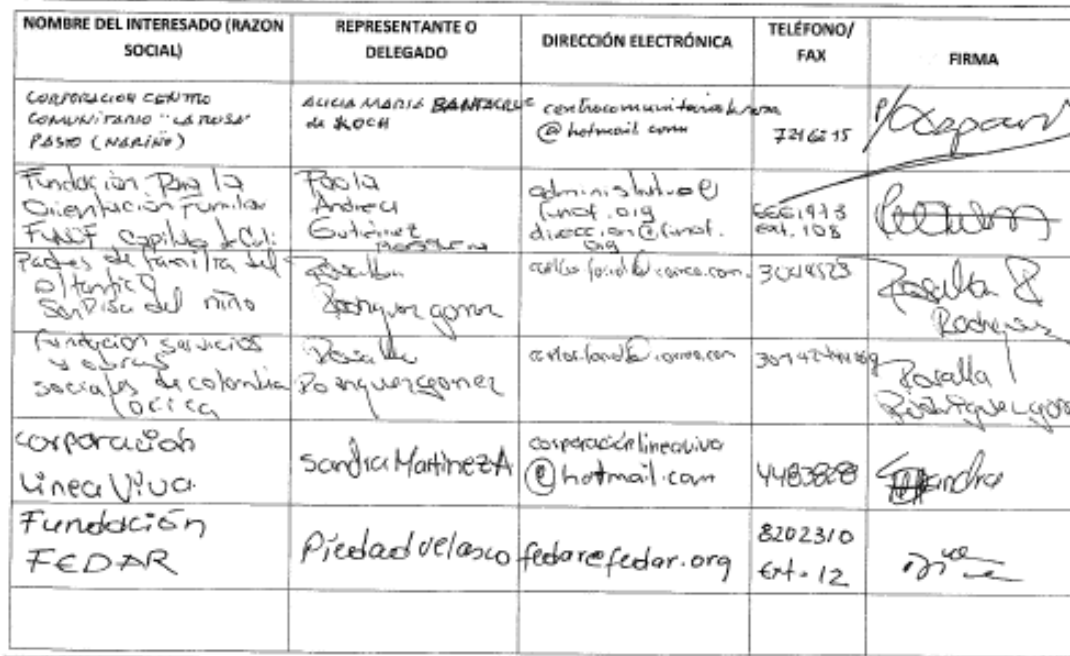 NOMBRE DEL INTERESADO (RAZON SOCIAL)
REPRESENTANTE O DELEGADO
DIRECCIÓN ELECTRÓNICA
TELÉFONO/ FAX
FIRMA
CORPORACION CENTRO
COMUNITARIO "LA ROSA"
PASTO (NARIÑO)
ALICIA MARIA
de KOCH
@ hotmail.com
7216215
Fundación Para la
Orientación Familiar
FUNOF Capítulo de Cali
Paola
Andrea
Gutiérrez
administrativo@
funof.org
direccion@funof.
org
6661973
ext. 108
Padres de familia del
atlantico
del niño
Rosalba
Rodriguez gomez
Rosalba R
Rodriguez
fundacion servicios
y obras
sociales de colombia
lorica
Rosalba
Rodriguez gomez
Rosalba
Rodriguez gom
corporación
Línea Viva.
Sandra Martinez A
corporaciónlineaviva
@hotmail.com
4483828
Sandra
Fundación
FEDAR
Piedad Velasco
fedar@fedar.org
8202310
Ext. 12